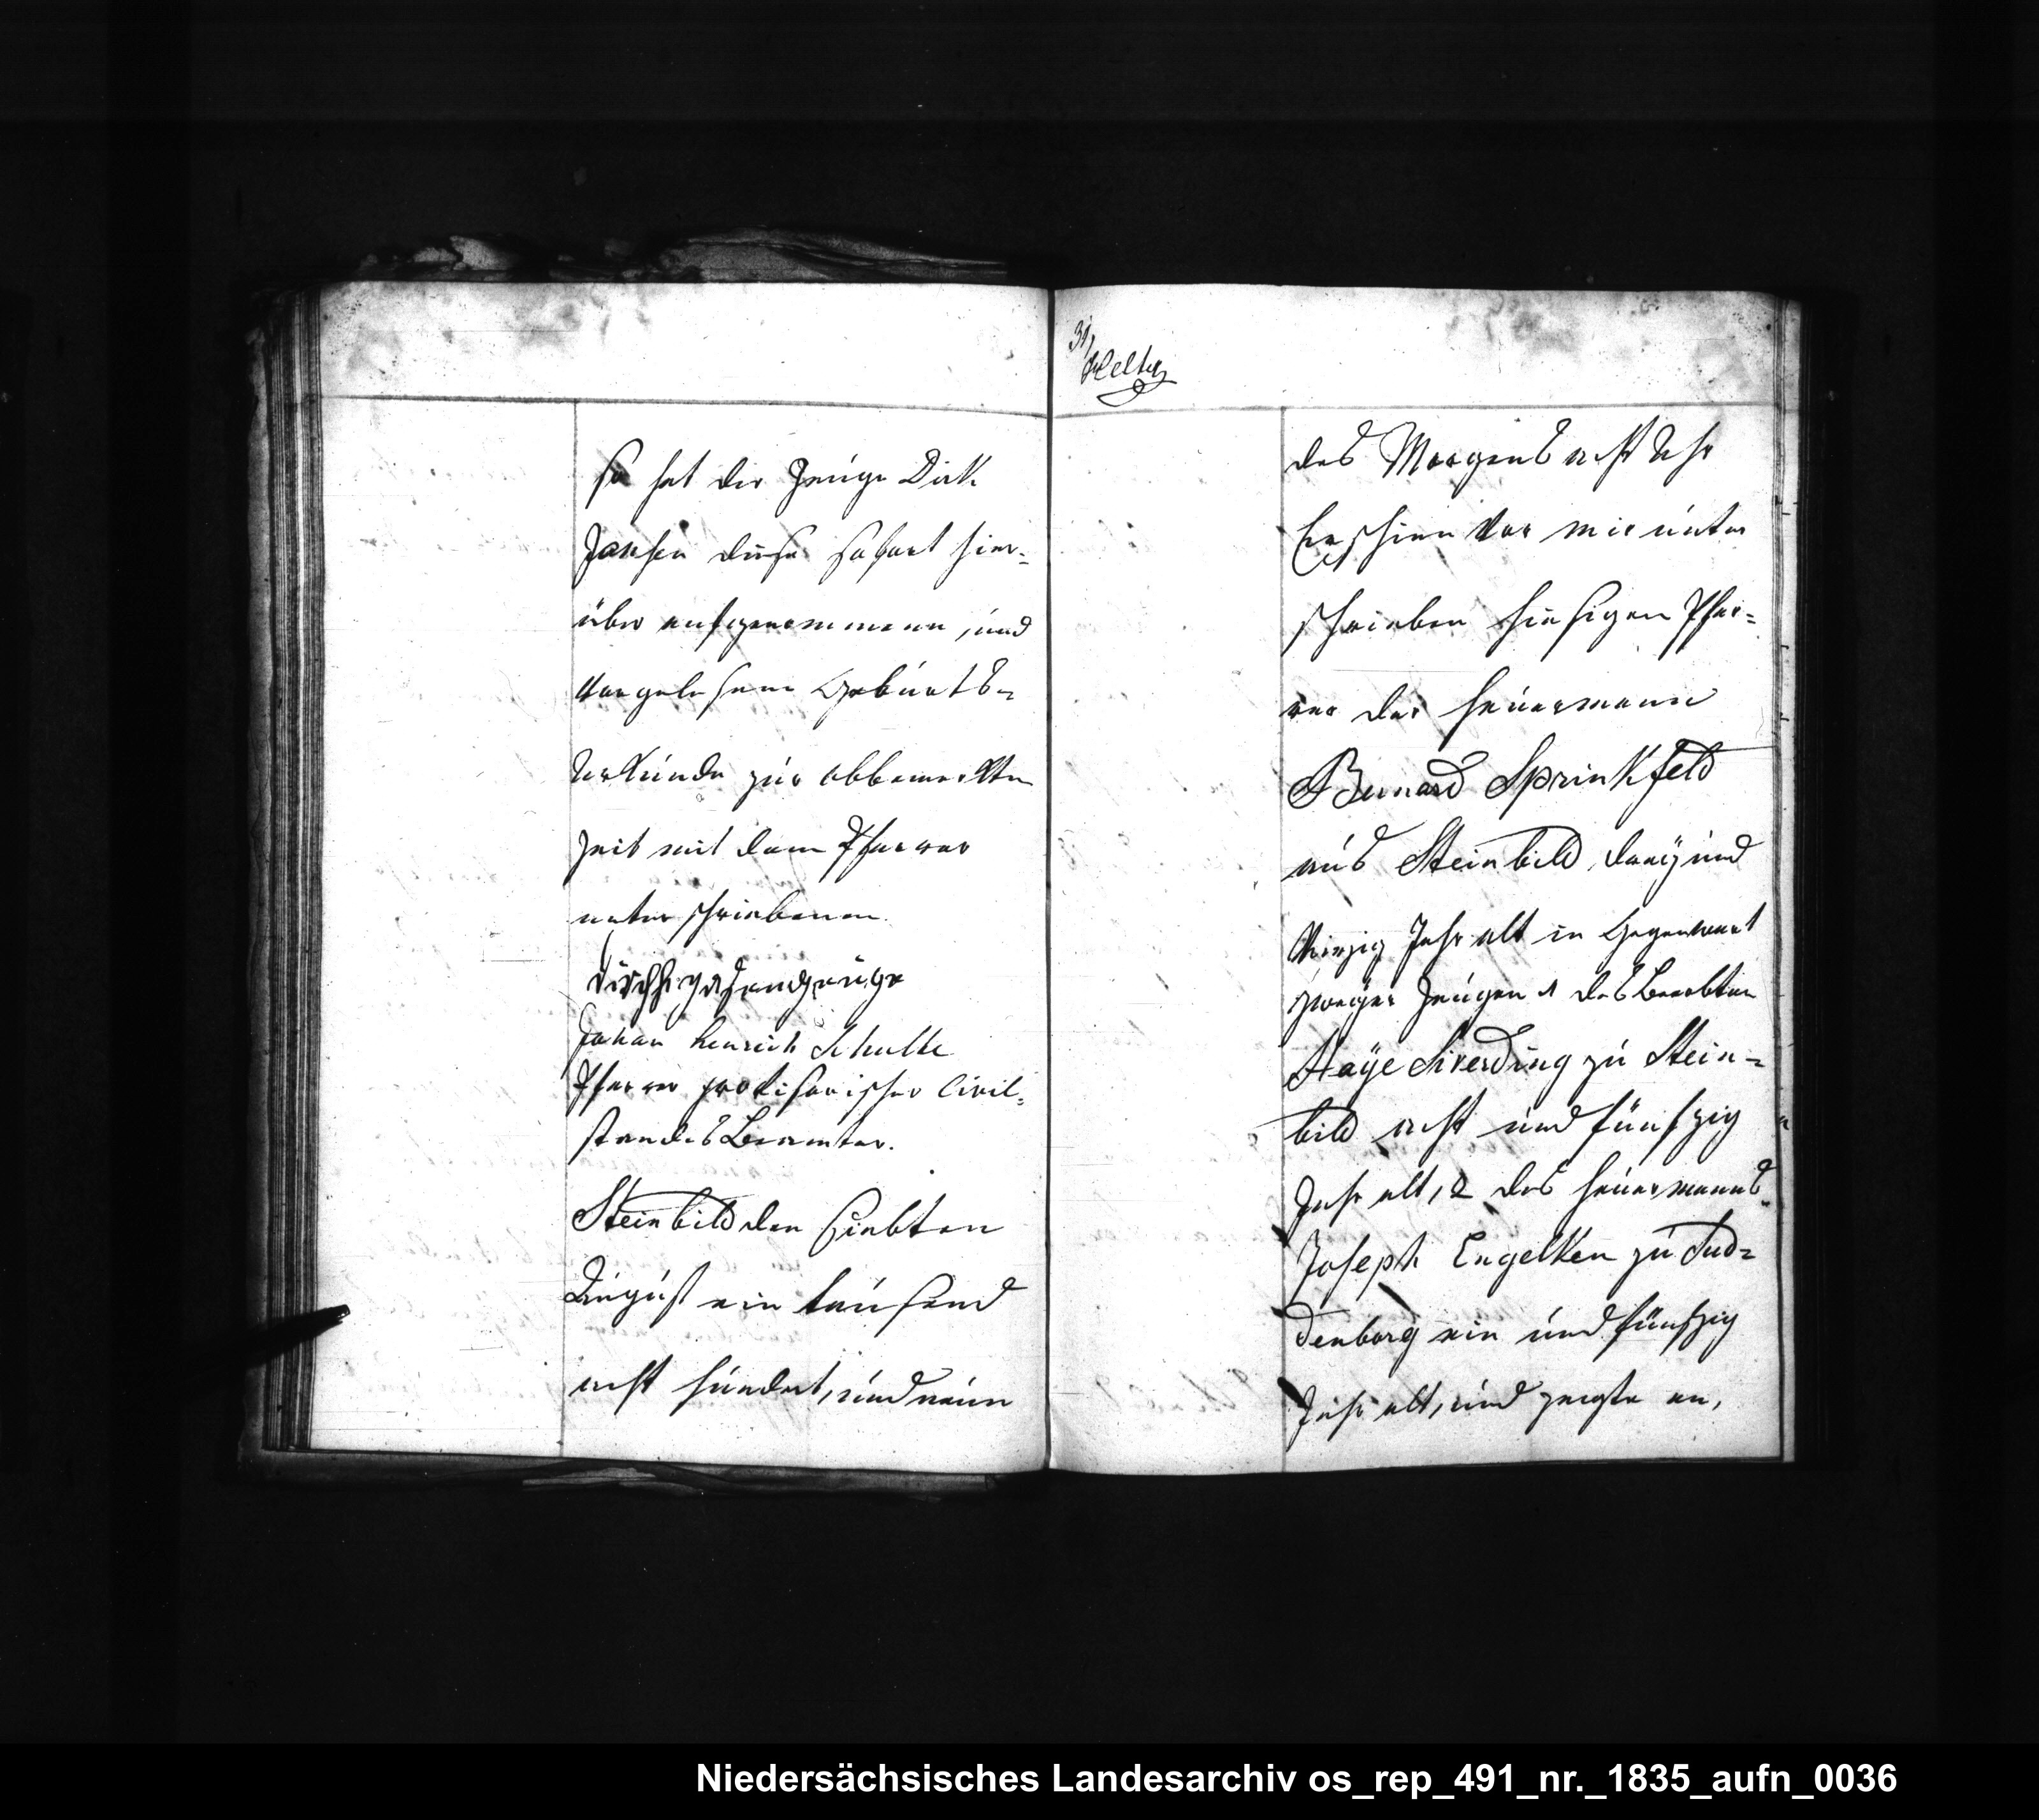 so hat der Zeuge Dirk
Jansen diese sofort hier-
über aufgenommene, und
vorgelesene Geburts-
Urkunde zur obbemerkten
Zeit mit dem Pfarrer
unterschriebenen.
Johan Henrich Schulte
Pfarrer provisorischer Civil-
standes Beamter.
Steinbild den Siebten
August ein tausend
acht hundert, und neun
31,
des Morgens acht Uhr
Erschien vor mir unter
schrieben hiesigen Pfar-
rer der Heuermann
Bernard Sprinkfeld
aus Steinbild, dreÿ und
vierzig Jahr alt in Gegenwart
zweÿer Zeugen 1 des Beerbten
Haÿe Siverding zu Stein-
bild acht und fünfzig
Jahr alt, 2 des Heuermanns
Joseph Engelken zu Sud-
denborg ein und fünfzig
Jahr alt, und zeigte an,
Niedersächsisches Landesarchiv os_rep_491_nr._1835_aufn_0036